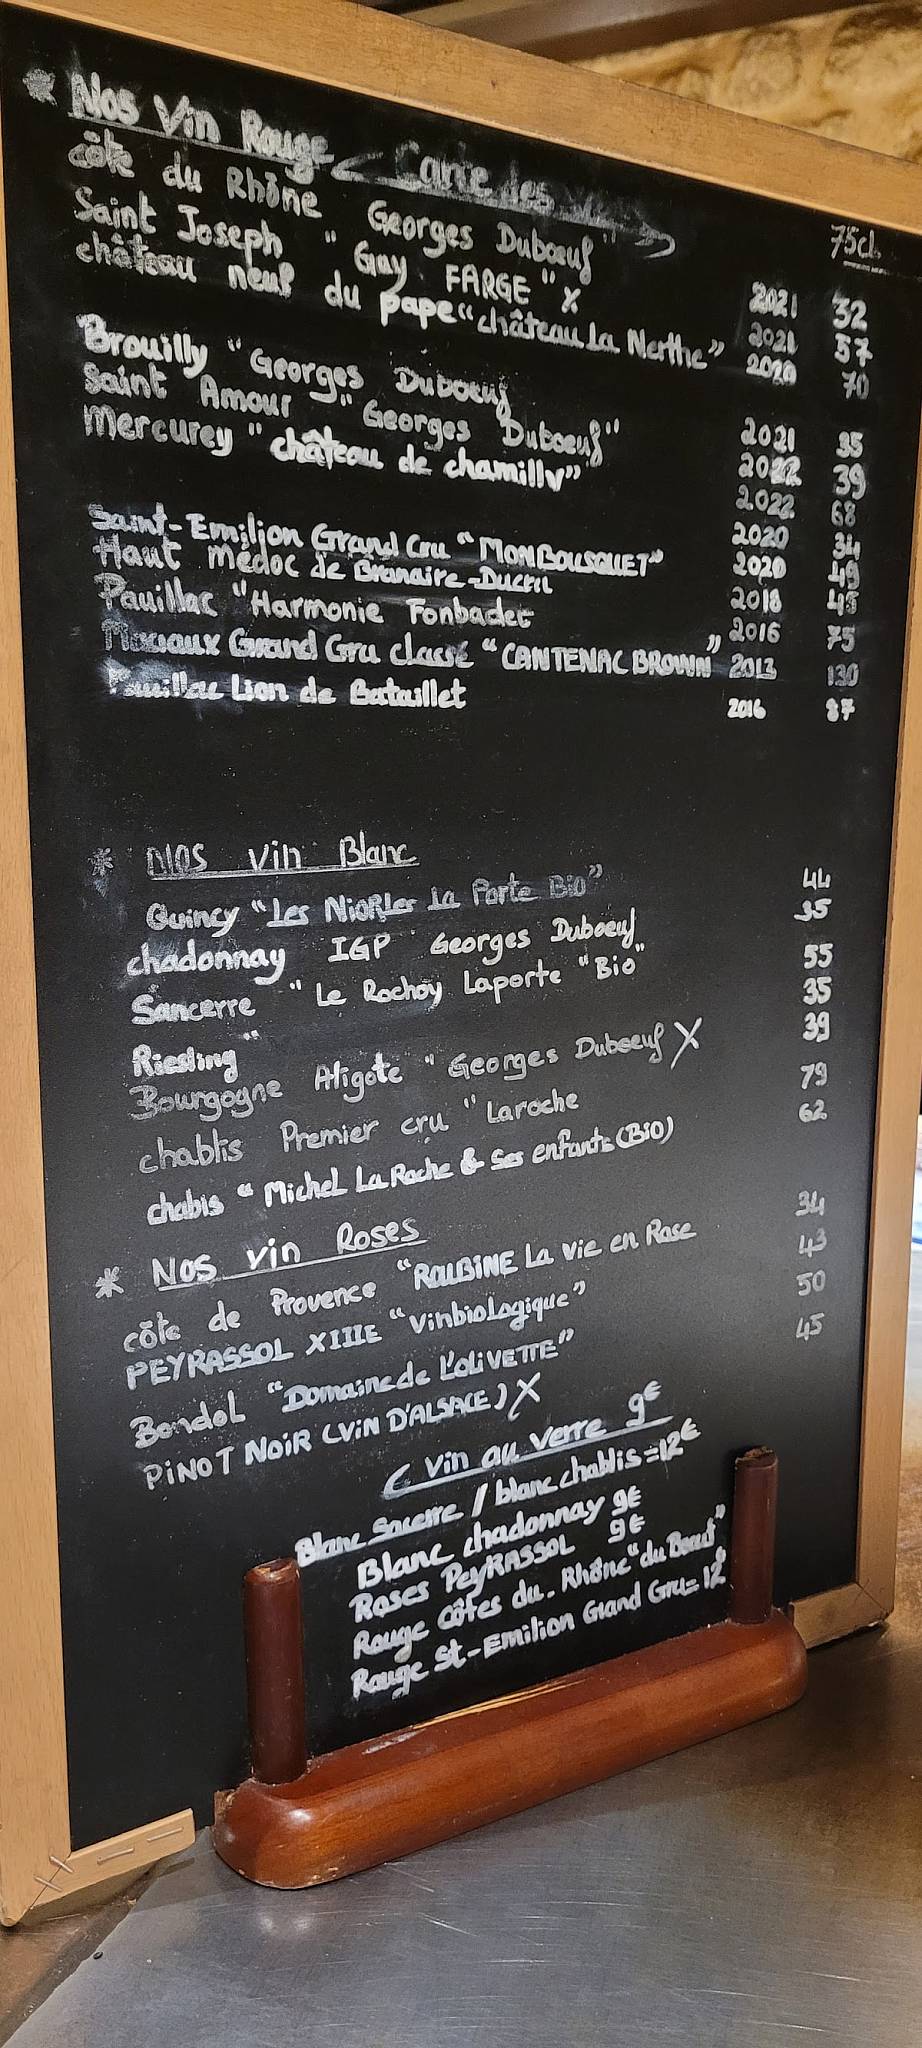 * Nos Vin Rouge < Carte des
75cl
côte du Rhône Georges Dubœuf" 2021 32
Saint Joseph " Guy FARGE" X 2021 57
château neuf du pape "château La Nerthe" 2020 70
Brouilly "Georges Dubœuf 2021 35
Saint Amour "Georges Dubœuf" 2022 39
Mercurey "château de chamilly" 2022 68
Saint-Emilion Grand Cru "MONBOUSQUET" 2020 34
Haut médoc de Branaire-Ducru 2020 49
Pauillac "Harmonie Fonbadet 2018 48
Grand Gru classé "CANTENAC BROWN" 2016 75
2013 130
Pauillac Lion de Bataillet 2016 87
* NOS vin Blanc
Quincy "Les NiORLes La Porte Bio" 44
chadonnay IGP Georges Duboeuf 35
Sancerre " Le Rochoy Laporte "Bio" 55
Riesling " 35
Bourgogne Aligote " Georges Duboeuf X 39
chablis Premier cru " Laroche 79
chabis " Michel LaRoche & Ses enfants (BiO) 62
* Nos vin Roses
côte de Provence "ROUBINE La vie en Rose 34
PEYRASSOL XIIIE "vinbioLogique" 43
BandoL "Domaine de L'OLiVETTE" 50
PiNOT NOiR (ViN D'ALSACE) X 45
( Vin au verre 9€
Blanc Sacerre / blanc chablis = 12€
Blanc chadonnay 9€
Roses PeyRASSOL 9€
Rouge côtes du-Rhône "du Beauf"
Rouge St-Emilion Grand Gru = 12€